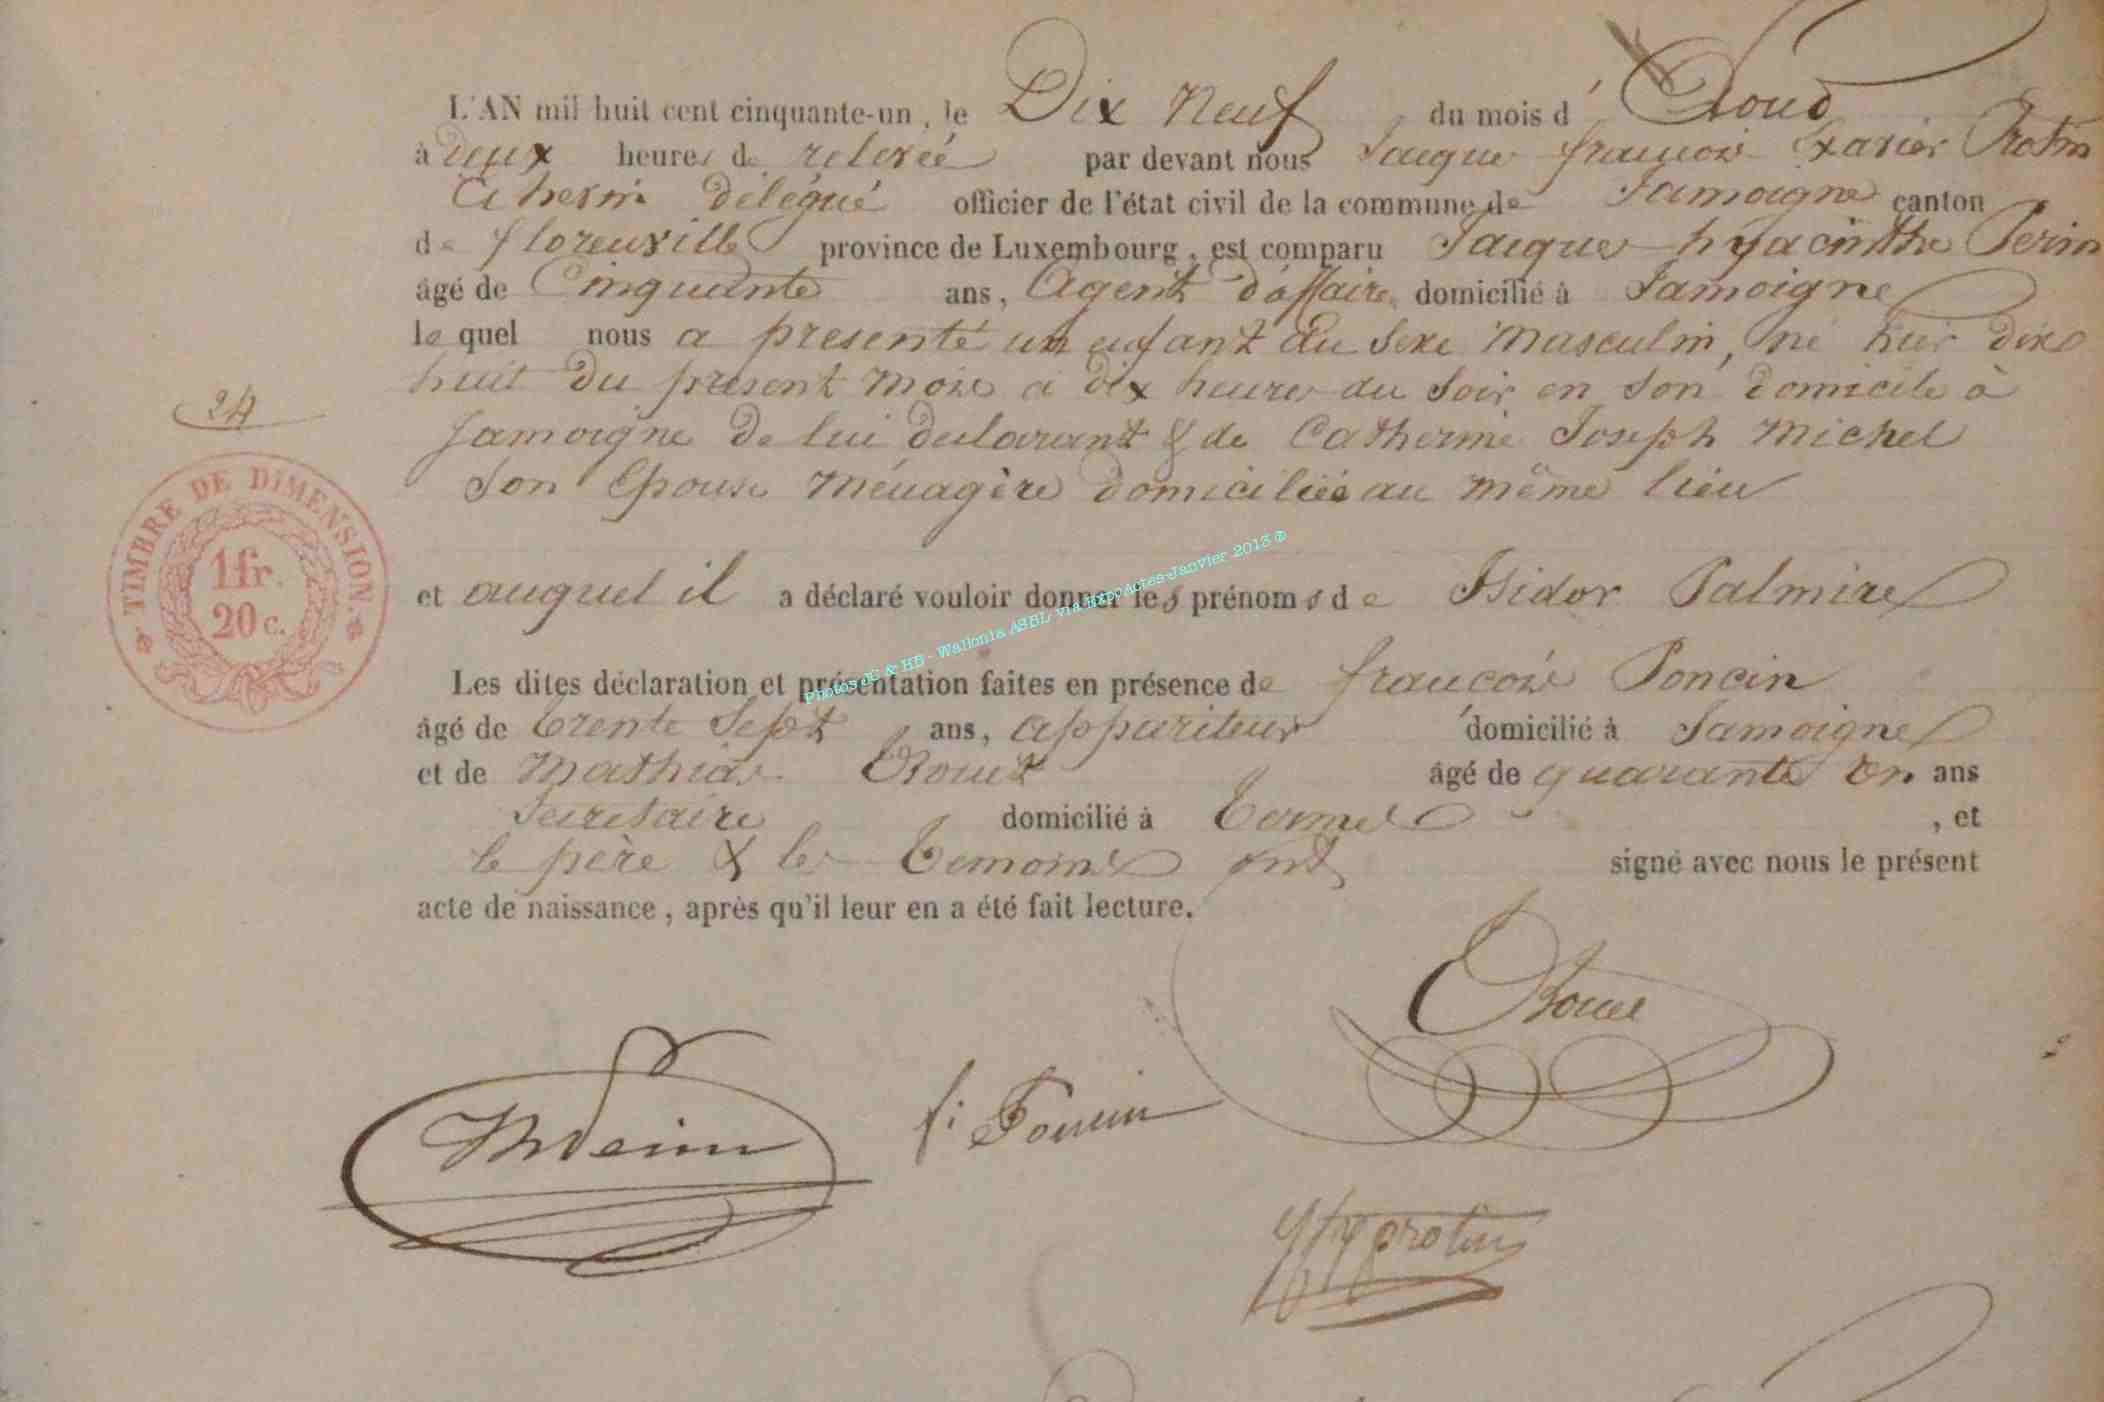 L'AN mil huit cent cinquante-un, le Dix Neuf du mois d'Aoud
à deux heures de relevée par devant nous Jacque françois Xavier Protin
Echevin délégué officier de l'état civil de la commune de Jamoigne canton
de florenville province de Luxembourg, est comparu Jacque hyacinthe Perin
âgé de Cinquante ans, Agent d'affaire domicilié à Jamoigne
le quel nous a presenté un enfant du sexe masculin, né hier dix
huit du présent mois à dix heures du soir en son domicile à
Jamoigne de lui declarant & de Catherine Joseph Michel
son Epouse Ménagère domiciliée au même lieu
24
TIMBRE DE DIMENSION.
1 fr.
20 c.
et auquel il a déclaré vouloir donner les prénoms de Isidor Palmire
Photos JC & HB - Wallonia ASBL via ExpoActes-Janvier 2013 ®
Les dites déclaration et présentation faites en présence de françois Poncin
âgé de trente sept ans, appariteur domicilié à Jamoigne
et de Mathias Rouit âgé de quarante un ans
Secretaire domicilié à Termes, et
le père & les Temoins ont signé avec nous le présent
acte de naissance, après qu'il leur en a été fait lecture.
f: Poncin
protin